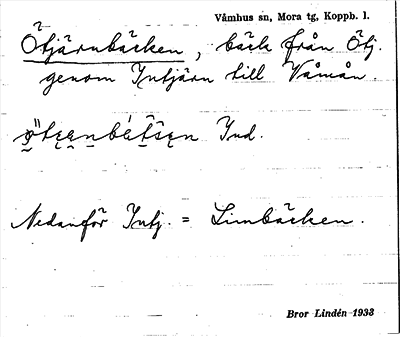 Våmhus sn, Mora tg, Koppb. l.
Ötjärnbäcken, bäck från Ötj.
genom Intjärn till Våmån.
Ind.
Nedanför Intj. = Limbäcken.
Bror Lindén 1933